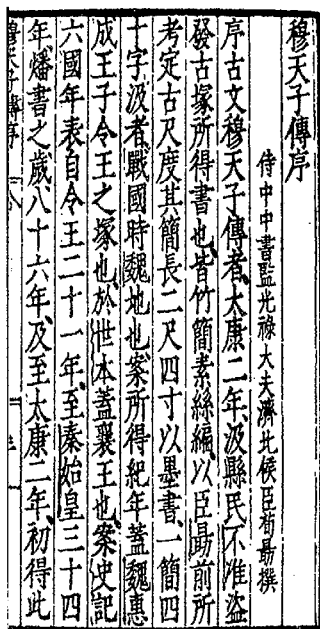 穆天子傳序
侍中中書監光祿大夫濟北侯臣荀勗撰
序古文穆天子傳者、太康二年、汲縣民不准盜
發古塚所得書也、皆竹簡素絲編、以臣勗前所
考定古尺度其簡長二尺四寸以墨書、一簡四
十字汲者、戰國時魏地也、案所得紀年蓋魏惠
成王子令王之塚也、於世本蓋襄王也、案史記
六國年表自令王二十一年、至秦始皇三十四
年、燔書之歲、八十六年、及至太康二年、初得此
穆天子傳序